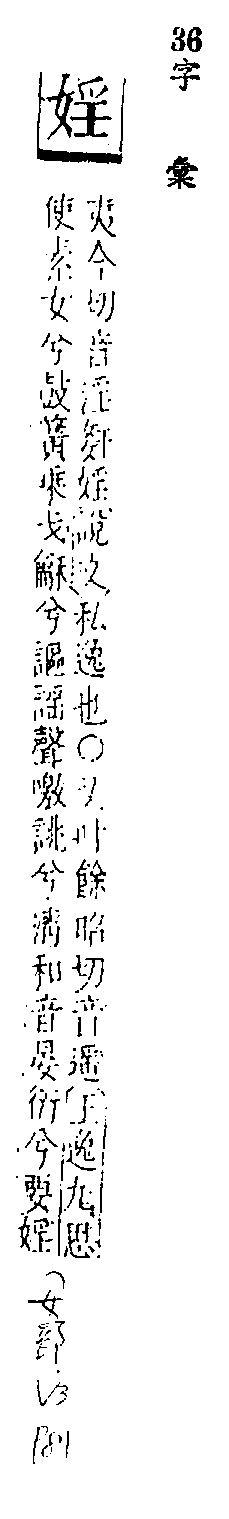 36
字彙
婬
夷今切音淫鄒婬說文私逸也〇又叶餘昭切音遥王逸九思
使素女兮鼓簧乘戈龢兮謳謡聲噭誂兮清和音晏衍兮要婬
女部